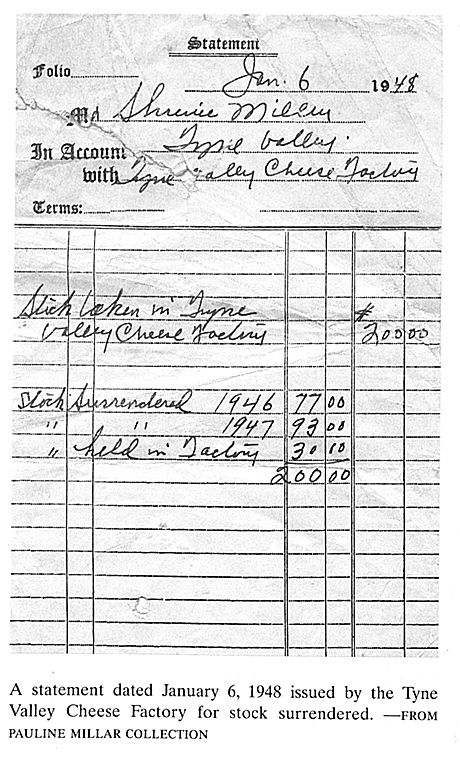 Statement
Folio Jan. 6 1948
M
In Account Tyne Valley.
with Tyne Valley Cheese Factory
Terms:
Stock taken in Tyne $
Valley Cheese Factory 200 00
Stock Surrendered 1946 77 00
" " 1947 93 00
" held in Factory 30 00
200 00
A statement dated January 6, 1948 issued by the Tyne
Valley Cheese Factory for stock surrendered. —FROM
PAULINE MILLAR COLLECTION